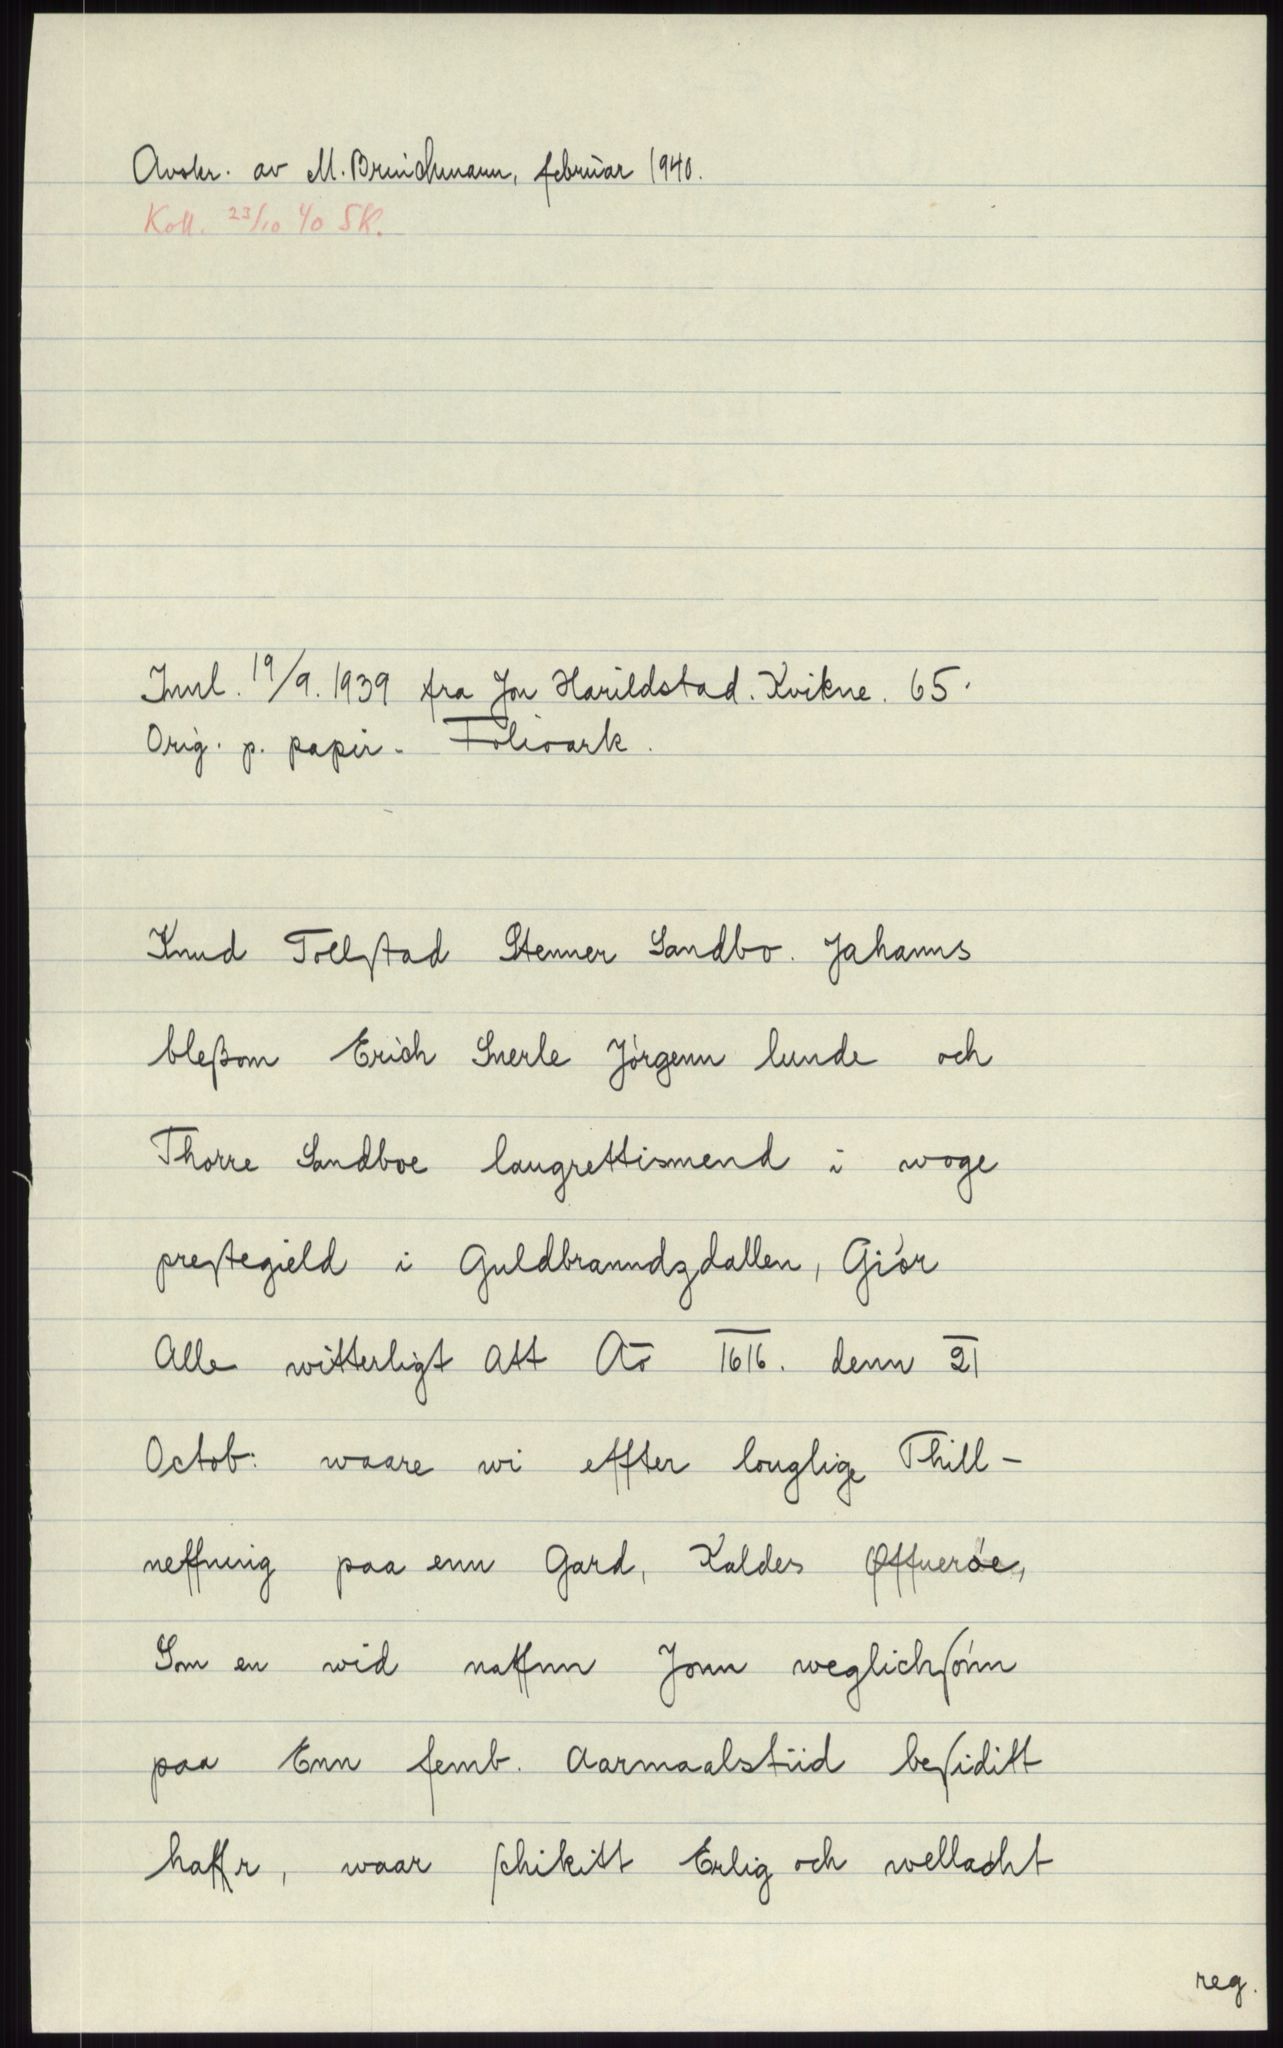 Avskr. av M. Brinchmann, februar 1940.
Koll. 23/10 40 SK.
Innl. 19/9. 1939 fra Jon Harildstad. Kvikne. 65.
Orig. p. papir. Folioark.
Knud Tollstad Stenner Sandbo. Jahanns
bleßom Erich Snerle Jórgenn lunde och
Thorre Sandboe laugrettismend i woge
prestegield i Guldbranndzdallen, Giór
Alle witterligt Att Ao 1616. denn 21
Octob: waare wi effter louglige Thill-
neffning paa enn Gard, Kaldes Øffuerøe,
Som en wid naffnn Jonn weglichsónn
paa Enn femb. Aarmaalstiid besiditt
haffr, waar schikitt Erlig och wellacht
reg.